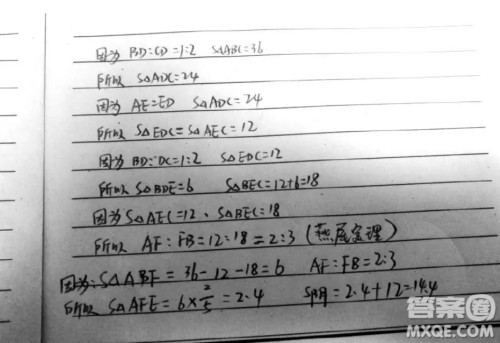 因为 BD:CD=1:2 S△ABC=36
所以 S△ADC=24
因为 AE=ED S△ADC=24
所以 S△EDC=S△AEC=12
因为 BD:DC=1:2 S△EDC=12
所以 S△BDE=6 S△BEC=12+6=18
因为 S△AEC=12、S△BEC=18
所以 AF:FB=12:18=2:3 (燕尾定理)
因为:S△ABF=36-12-18=6 AF:FB=2:3
所以 S△AFE=6×2/5=2.4 S阴=2.4+12=14.4
答案圈
MXQE.COM